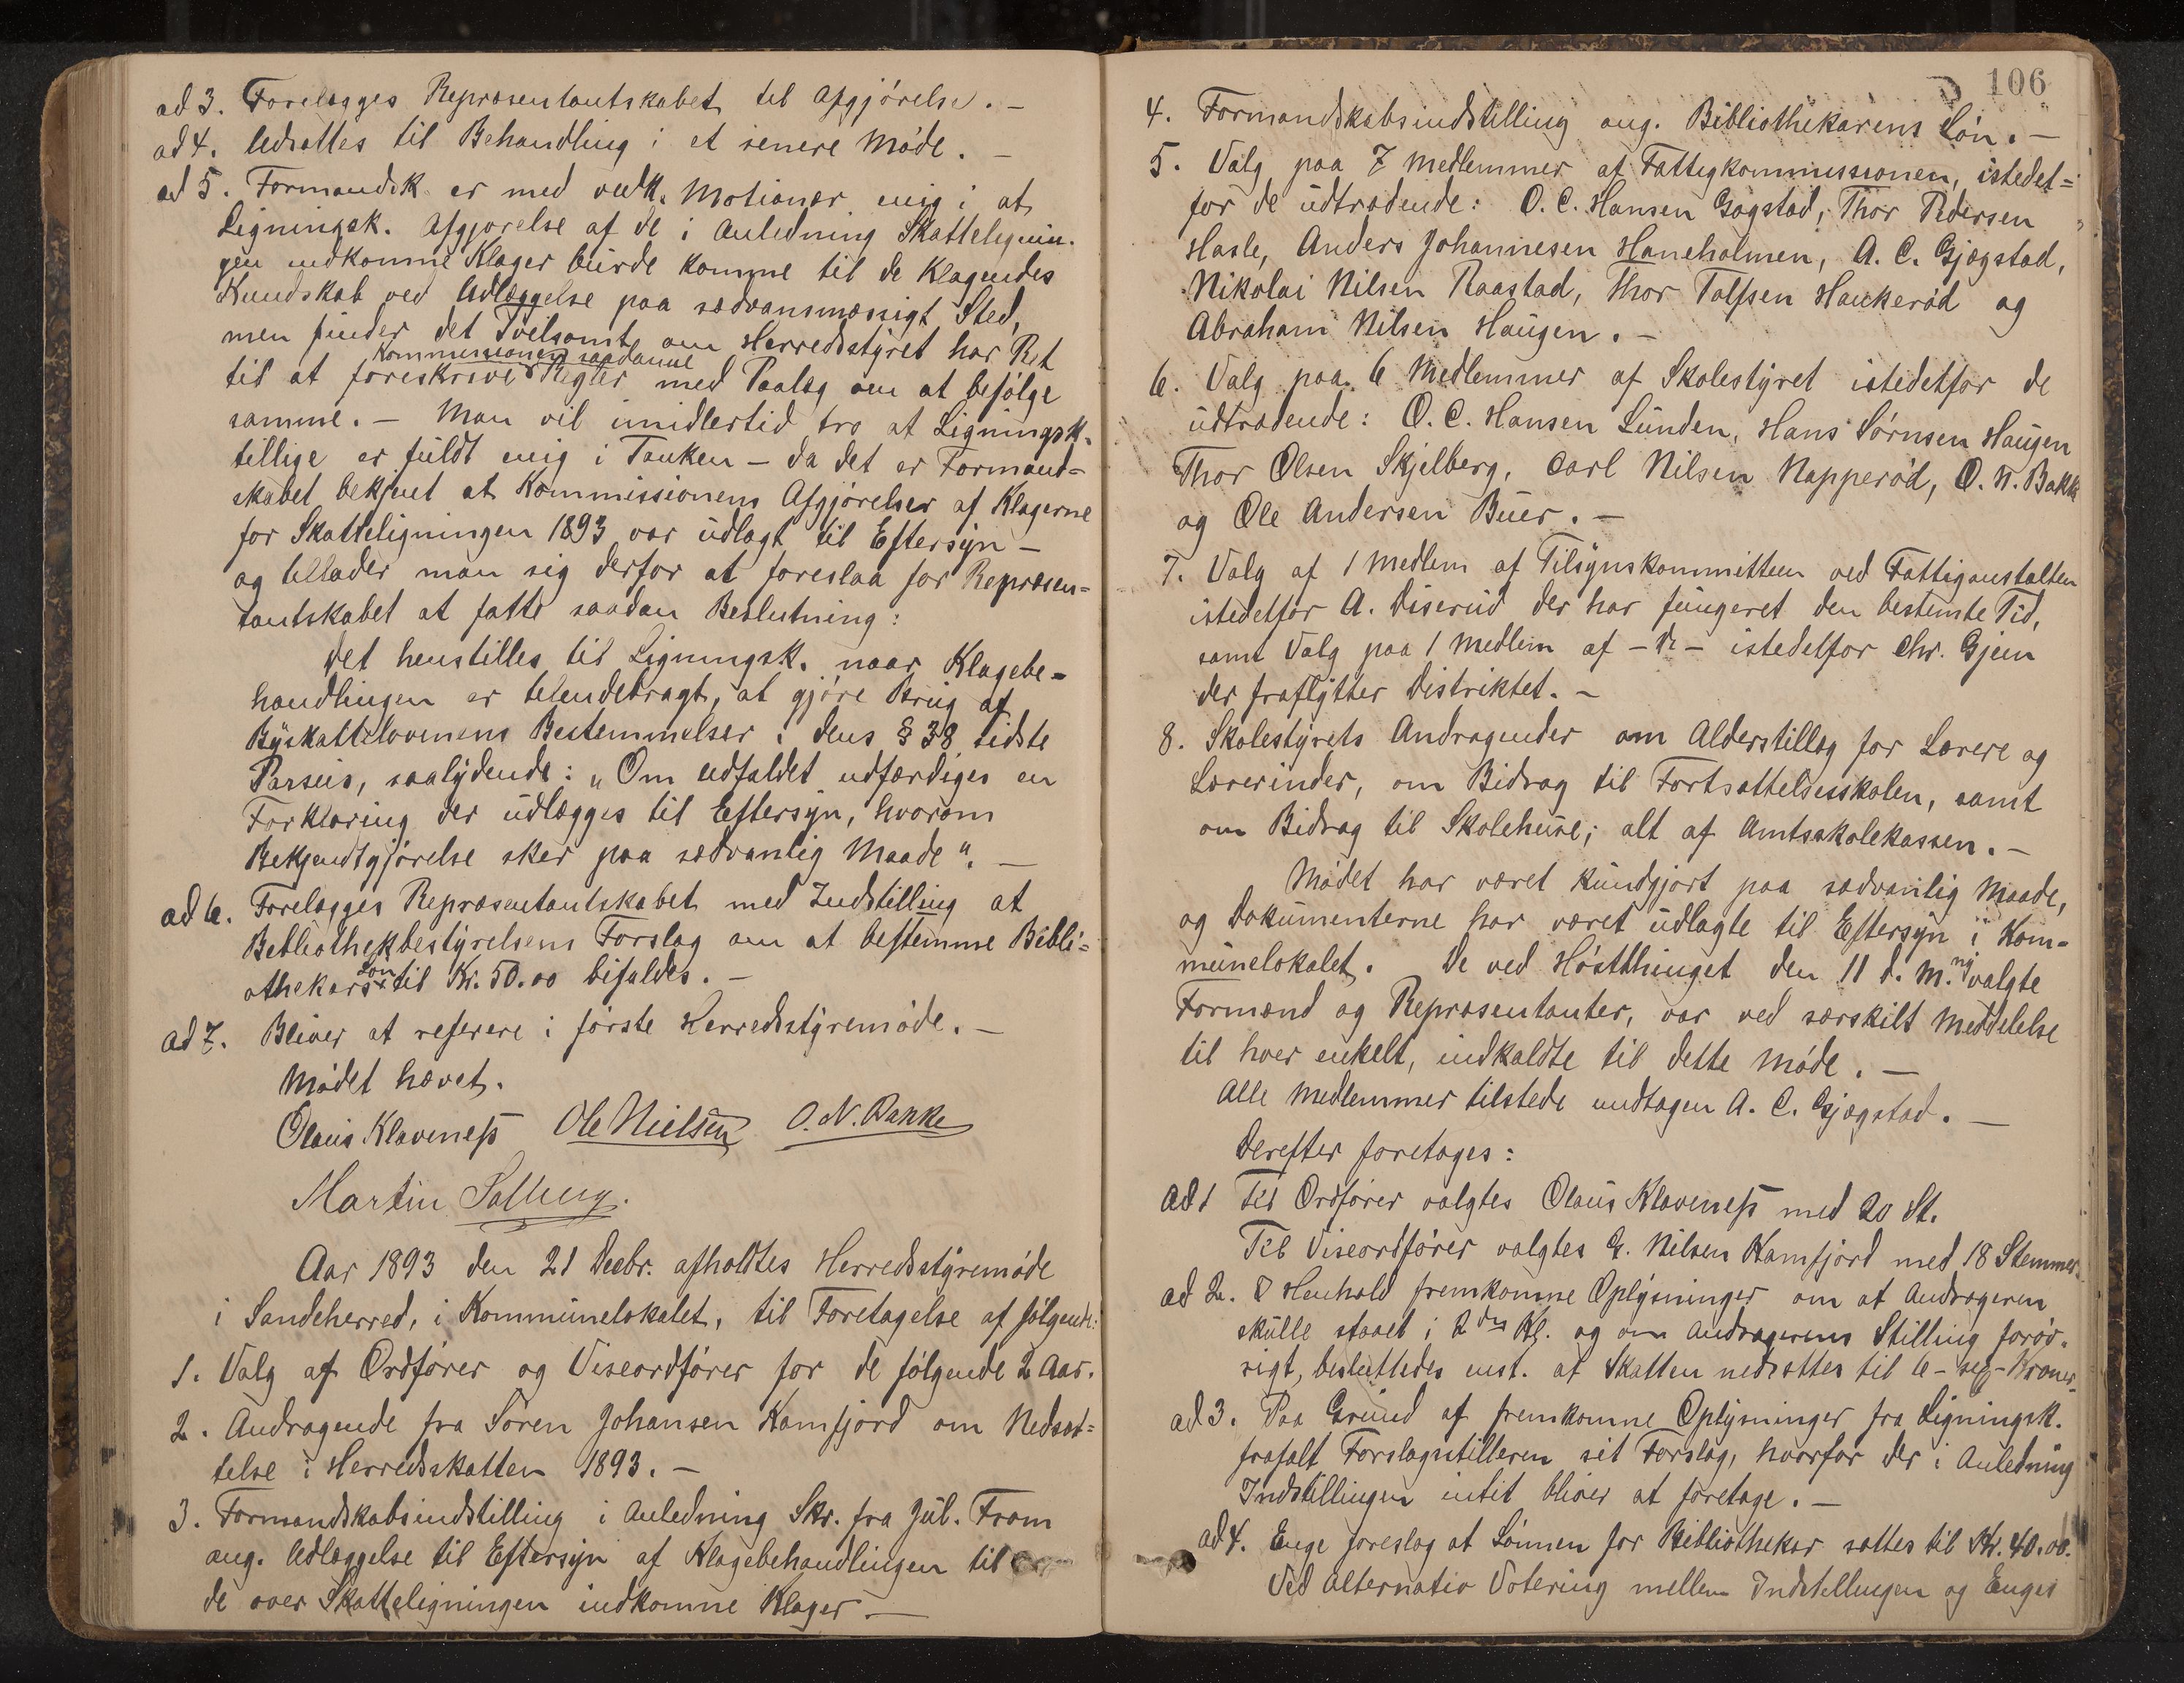 ad 3. Forelægges Repræsentantskabet til Afgjørelse. -
ad 4. Udsattes til Behandling i et senere Møde. -
ad 5. Formandsk. er med vedk. Motionær enig i at
Ligningsk. Afgjørelse af de i Anledning Skattelignin-
gen indkomne Klager burde komme til de Klagendes
Kundskab ved Udlæggelse paa sædvansmæssigt Sted,
men finder det Tvilsomt om Herredsstyret har Ret
Kommissionen saadanne
til at foreskrive Regler med Paalæg om at befølge
samme. - Man vil imidlertid tro at Ligningsk.
tillige er fuldt enig i Tanken - da det er Formand=
skabet bekjent at Kommissionens Afgjørelser af Klagerne
for Skatteligningen 1893 var udlagt til Eftersyn -
og tillader man sig derfor at foreslaa for Repræsen=
tantskabet at fatte saadan Beslutning:
Det henstilles til Ligningsk. naar Klagebe=
handlingen er tilendebragt, at gjøre Brug af
Byskattelovenens Bestemmelser i dens § 38 sidste
Passus, saalydende: "Om Udfaldet udfærdiges en
Forklaring der udlægges til Eftersyn, hvorom
Bekjendtgjørelse sker paa sædvanlig Maade". -
ad 6. Forelægges Repræsentantskabet med Indstilling at
Bibliothekbestyrelsens Forslag om at bestemme Bibli=
othekars Løn til Kr. 50.00 bifaldes. -
ad 7. Bliver at referere i første Herredsstyremøde. -
Mødet hævet.
Olaus Klaveness Ole Nielsen O. N. Bakke
Martin Solberg.
Aar 1893 den 21 Decbr. afholdtes Herredsstyremøde
i Sandeherred, i Kommunelokalet, til Foretagelse af følgende:
1. Valg af Ordfører og Viseordfører for de følgende 2 Aar.
2. Andragende fra Søren Johansen Kamfjord om Nedsæt=
telse i Herredsskatten 1893. -
3. Formandskabsindstilling i Anledning Skr. fra Jul. From
ang. Udlæggelse til Eftersyn af Klagebehandlingen til
de over Skatteligningen indkomne Klager. -
106
4. Formandskabsindstilling ang. Bibliothekarens Løn. -
5. Valg paa 7 Medlemmer af Fattigkommissionen, istedet=
for de udtrædende: O. C. Hansen Gogstad, Thor Pedersen
Hasle, Anders Johannesen Haneholmen, A. C. Gjøgstad,
Nikolai Nilsen Raastad, Thor Tolfsen Haukerød og
Abraham Nilsen Haugen. -
6. Valg paa 6 Medlemmer af Skolestyret istedetfor de
udtrædende: O. C. Hansen Lunden, Hans Sørnsen Haugen
Thor Olsen Skjelberg, Carl Nilsen Napperød, O. N. Bakke
og Ole Andersen Buer. -
7. Valg af 1 Medlem af Tilsynskommitteen ved Fattiganstalten
istedetfor A. Diserud der har fungeret den bestemte Tid,
samt Valg paa 1 Medlem af - do - istedetfor Chr. Gjein
der fraflytter Distriktet. -
8. Skolestyrets Andragender om Alderstillæg for Lærere og
Lærerinder, om Bidrag til Fortsættelsesskolen, samt
om Bidrag til Skolehuse; alt af Amtsskolekassen. -
Mødet har været kundgjort paa sædvanlig Maade,
og Dokumenterne har været udlagte til Eftersyn i Kom=
munelokalet. De ved Høstthinget den 11 d. M. ny valgte
Formænd og Repræsentanter, var ved særskilt Meddelelse
til hver enkelt, indkaldte til dette Møde. -
Alle Medlemmer tilstede undtagen A. C. Gjøgstad. -
Derefter foretoges:
ad 1 Til Ordfører valgtes Olaus Klaveness med 20 St.
Til Viseordfører valgtes G. Nilsen Kamfjord med 18 Stemmer
ad 2. I Henhold fremkomne Oplysninger om at Andrageren
skulle staaet i 2den Kl. og om Andragerens Stilling forøv=
rigt, besluttedes enst. at Skatten nedsættes til 6 - sex - Kroner.
ad 3. Paa Grund af fremkomne Oplysninger fra Ligningsk.
frafalt Forslagsstilleren sit Forslag, hvorfor der i Anledning
Indstillingen intit bliver at foretage. -
ad 4. Enge foreslog at Lønnen for Bibliothekar sættes til Kr. 40.00.
Ved alternativ Votering mellem Indstillingen og Enges